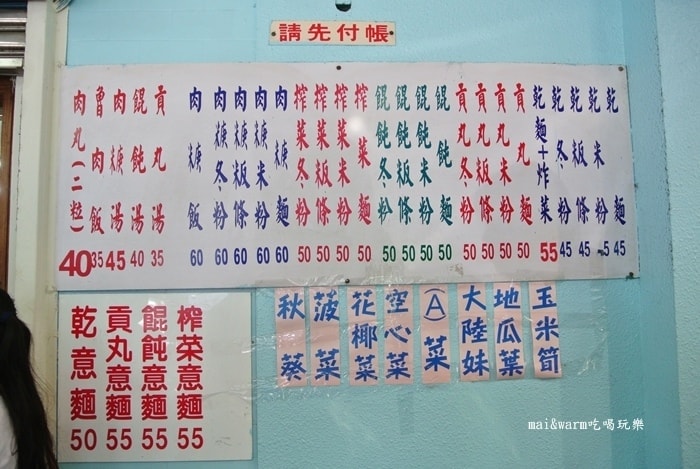 請先付帳
肉丸(二粒) 40
魯肉飯 35
肉焿湯 45
餛飩湯 40
貢丸湯 35
肉焿飯 60
肉焿冬粉 60
肉焿粄條 60
肉焿米粉 60
肉焿麵 60
榨菜冬粉 50
榨菜粄條 50
榨菜米粉 50
榨菜麵 50
餛飩冬粉 50
餛飩粄條 50
餛飩米粉 50
餛飩麵 50
貢丸冬粉 50
貢丸粄條 50
貢丸米粉 50
貢丸麵 50
乾麵+炸菜 55
乾冬粉 45
乾粄條 45
乾米粉 5
乾麵 45
乾意麵 50
貢丸意麵 55
餛飩意麵 55
榨菜意麵 55
秋葵
菠菜
花椰菜
空心菜
(A)菜
大陸妹
地瓜葉
玉米筍
mai&warm吃喝玩樂